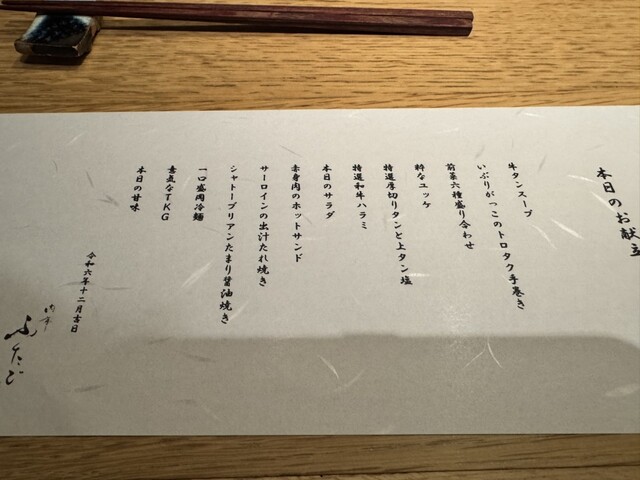 本日のお献立
牛タンスープ
いぶりがっこのトロタク手巻き
前菜六種盛り合わせ
粋なユッケ
特選厚切りタンと上タン塩
特選和牛ハラミ
本日のサラダ
赤身肉のホットサンド
サーロインの出汁たれ焼き
シャトーブリアンたまり醤油焼き
一口盛岡冷麺
意気なTKG
本日の甘味
令和六年十二月吉日
ふたご